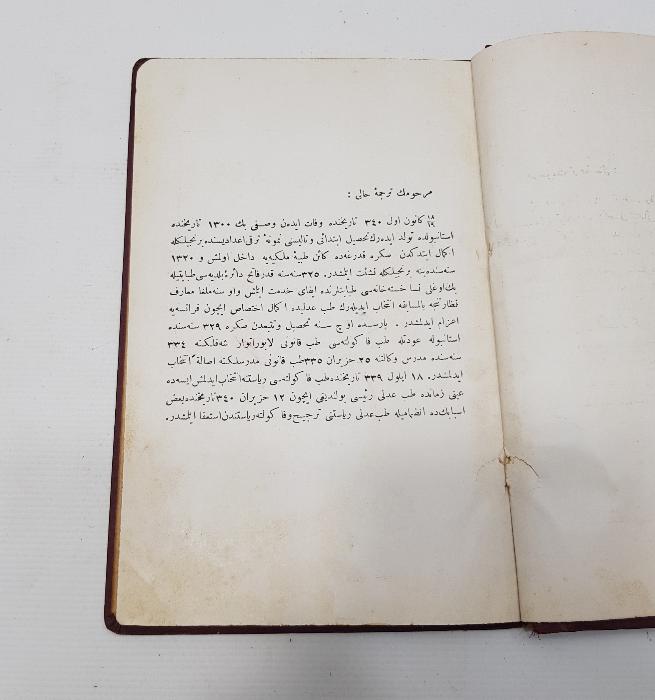 مرحومك ترجمهٔ حالى :
١٨/١٩ كانون اول ٣٤٠ تاريخنده وفات ايدن وصفى بك ١٣٠٠ تاريخنده
استانبولده تولد ايدهرك تحصيل ابتدائى و تاليسنى نمونهٔ ترقى اعداديسنده برنجيلكله
اكمال ايتدكدن سكره قدرغهده كائن طبيهٔ ملكيهيه داخل اولمش و ١٣٢٠
سنهسنده ينه برنجيلكله نشئت ايتمشدر. ٣٢٥ سنهسنه قدر فاتح دائرهٔ بلديهسى طبابتيله
بك اوغلى نسا خستهخانهسى طبابتلرنده ايفاى خدمت ايتمش واو سنه معارف
نظارتنجه بالمسابقه انتخاب ايديلهرك طب عدليده اكمال اختصاص ايچون فرانسهيه
اعزام ايدلمشدر . پارسده اوچ سنه تحصيل و تتبعدن سكره ٣٢٩ سنهسنده
استانبوله عودتله طب فاكولتهسى طب قانونى لابوراتوار شفلكنه ٣٣٤
سنهسنده مدرس وكالتنه ٢٥ حزيران ٣٣٥ طب قانونى مدرسلكنه اصالةً انتخاب
ايدلمشدر. ١٨ ايلول ٣٣٩ تاريخنده طب فاكولتهسى رياستنه انتخاب ايدلمش ايسهده
عينى زمانده طب عدلى رئيسى بولنديغى ايچون ١٢ حزيران ٣٤٠ تاريخنده بعض
اسبابكده انضماميله طب عدلى رياستنى ترجيح و فاكولته رياستندن استعفا ايتمشدر.